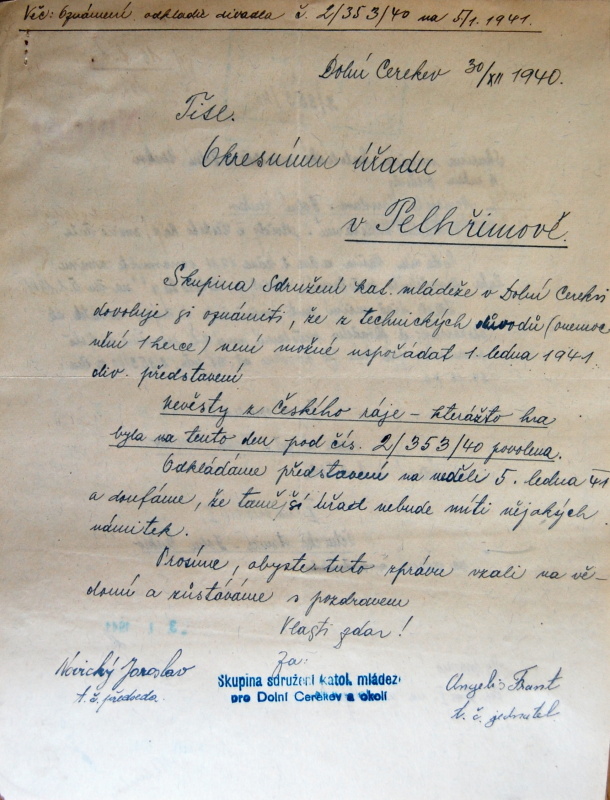 Věc: Oznámení odkladu divadla č. 2/353/40 na 5/1. 1941.
Dolní Cerekev 30/XII 1940.
Titl.
Okresnímu úřadu
v Pelhřimově.
Skupina Sdružení kat. mládeže v Dolní Cerekvi
dovoluje si oznámiti, že z technických důvodů (onemoc
nění 1 herce) není možné uspořádat 1. ledna 1941
div. představení
Nevěsty z českého ráje – kterážto hra
byla na tento den pod čís. 2/353/40 povolena.
Odkládáme představení na neděli 5. ledna 41
a doufáme, že tamější úřad nebude míti nějakých
námitek.
Prosíme, abyste tuto zprávu vzali na vě-
domí a zůstáváme s pozdravem
Vlasti zdar!
Za:
Skupina sdružení katol. mládeže
pro Dolní Cerekev a okolí
Novický Jaroslav
t. č. předseda.
Angelis Frant
t. č. jednatel.